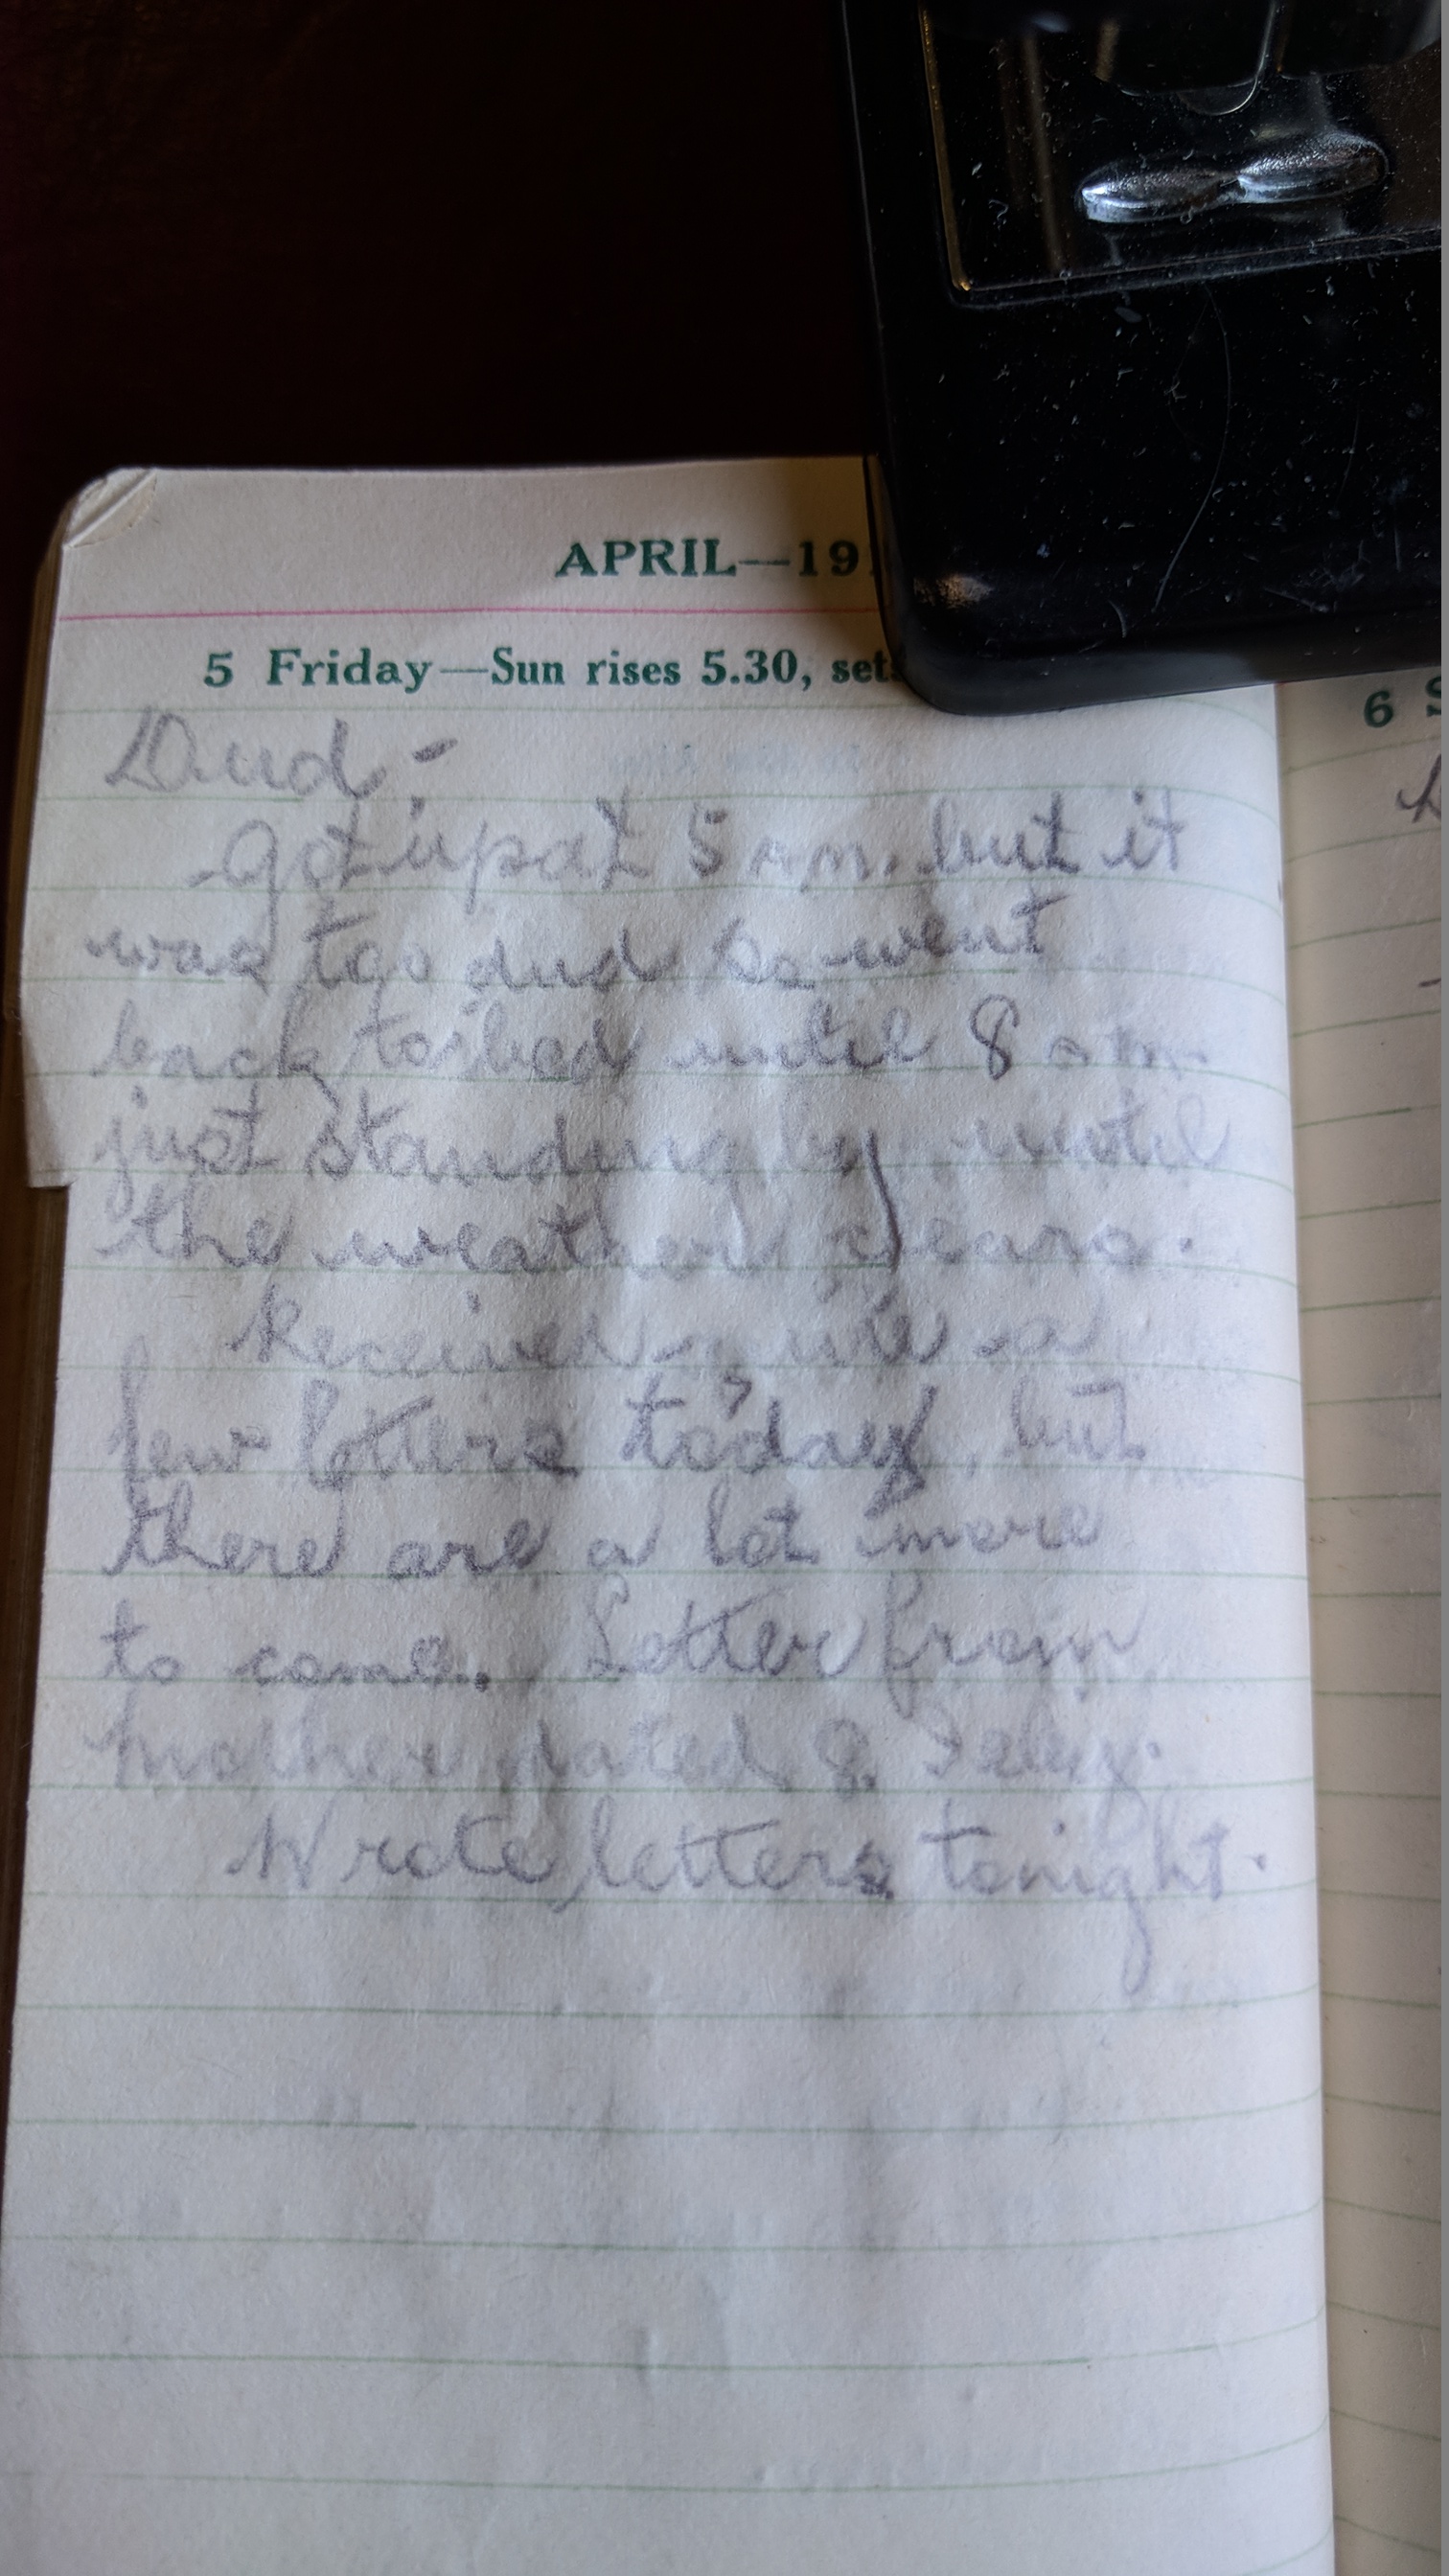 APRIL—19
5 Friday—Sun rises 5.30, sets
6 S
Dud -
Got up at 5 am. but it
was too dud so went
back to bed until 8 am
just standing by until
the weather clears.
Received quite a
few letters today, but
there are a lot more
to come. Letter from
mother dated 8 Feby.
Wrote letters tonight.